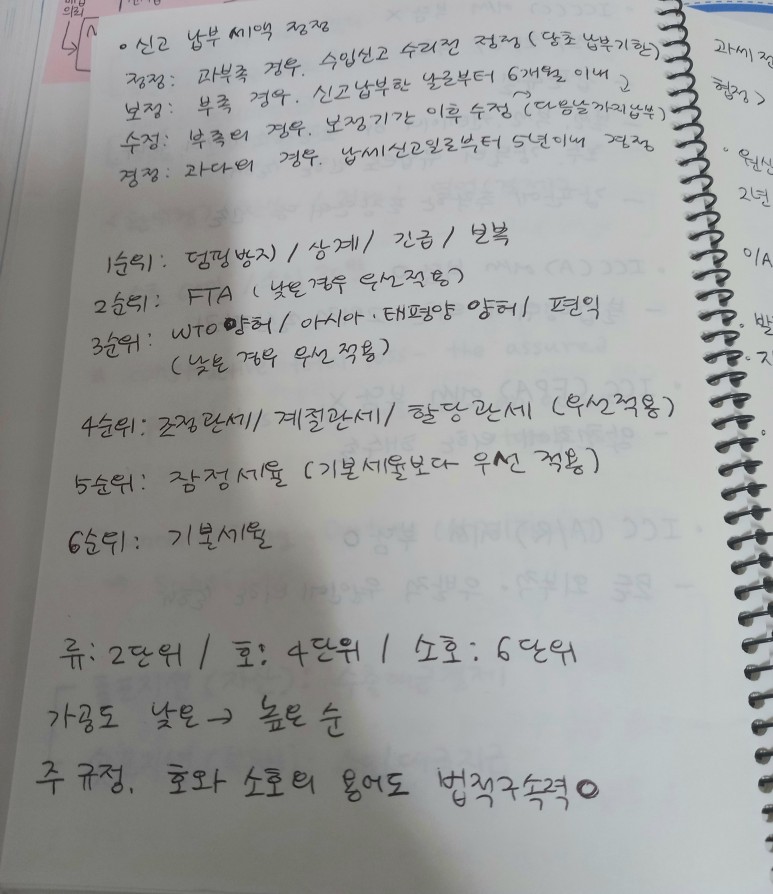 의뢰
• 신고 납부 세액 정정
정정: 과부족 경우. 수입신고 수리전 정정 (당초 납부기한)
보정: 부족 경우. 신고납부한 날로부터 6개월 이내
수정: 부족의 경우. 보정기간 이후 수정 (다음날까지납부)
경정: 과다의 경우. 납세신고일로부터 5년이내 경정
1순위: 덤핑방지 / 상계 / 긴급 / 보복
2순위: FTA (낮은경우 우선적용)
3순위: WTO 양허 / 아시아·태평양 양허 / 편익
(낮은 경우 우선 적용)
4순위: 조정관세 / 계절관세 / 할당관세 (우선적용)
5순위: 잠정세율 (기본세율보다 우선 적용)
6순위: 기본세율
류: 2단위 / 호: 4단위 / 소호: 6단위
가공도 낮은 → 높은 순
주 규정. 호와 소호의 용어도 법적구속력 O
과세전
협정>
2년